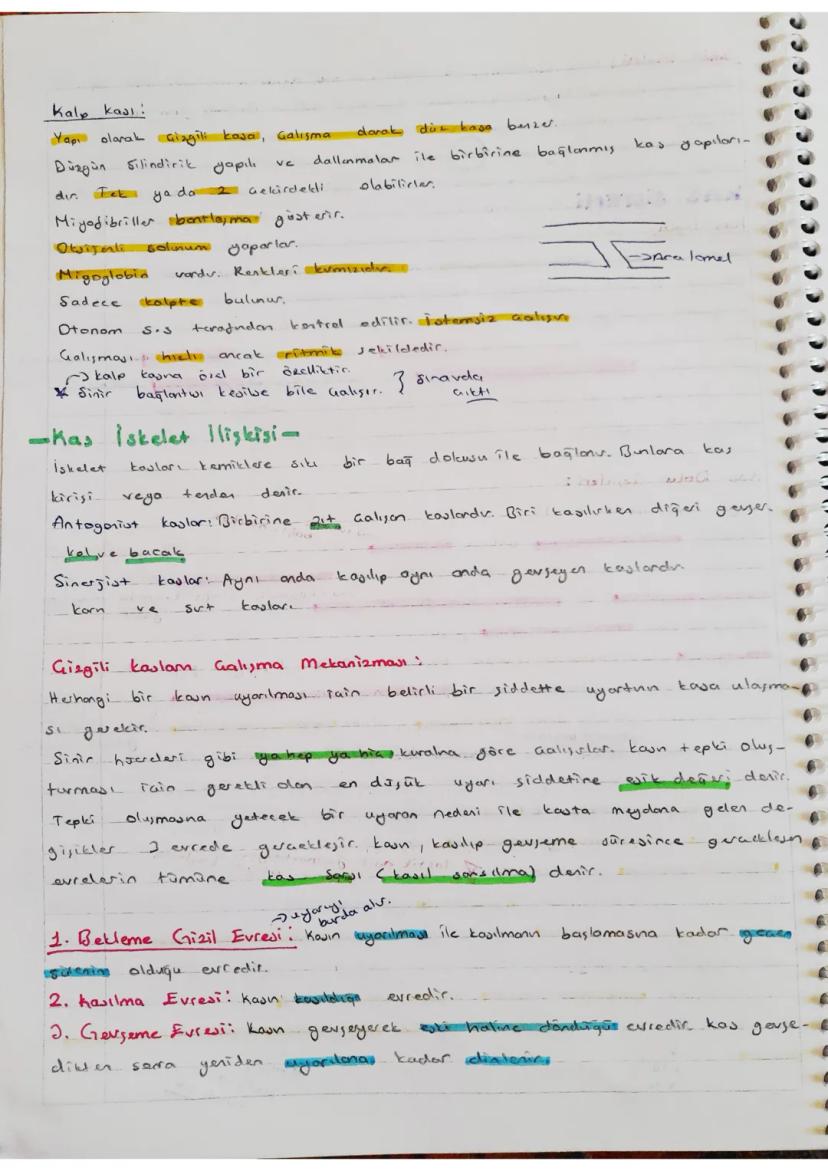 Kalp kası:
Yapı olarak Çizgili kasa, Çalışma olarak düz kasa benzer.
Düzgün silindirik yapılı ve dallanmalar ile birbirine bağlanmış kas yapıları-
dır. Tek yada 2 çekirdekli olabilirler.
Miyofibriller bantlaşma gösterir.
Oksijenli solunum yaparlar.
Miyoglobin vardır. Renkleri kırmızıdır.
→ Ara lamel
Sadece kalpte bulunur.
Otonom s.s tarafından kontrol edilir. İstemsiz çalışır
Çalışması hızlı ancak ritmik şekildedir.
→ kalp kasına özel bir özelliktir.
* Sinir bağlantısı kesilse bile çalışır. } sınavda çıktı
- Kas İskelet İlişkisi -
İskelet kasları kemiklere sıkı bir bağ dokusu ile bağlanır. Bunlara kas
kirişi veya tendon denir.
Antagonist kaslar: Birbirine zıt çalışan kaslardır. Biri kasılırken diğeri gevşer.
kol ve bacak
Sinerjist kaslar: Aynı anda kasılıp aynı anda gevşeyen kaslardır.
karın ve sırt kasları
Çizgili kasların Çalışma Mekanizması:
Herhangi bir kasın uyarılması için belirli bir şiddette uyartının kasa ulaşma-
sı gerekir.
Sinir hücreleri gibi ya hep ya hiç kuralına göre çalışırlar. kasın tepki oluş-
turması için gerekli olan en düşük uyarı şiddetine eşik değeri denir.
Tepki oluşmasına yetecek bir uyaran nedeni ile kasta meydana gelen de-
ğişikler 3 evrede gerçekleşir. kasın, kasılıp gevşeme süresince gerçekleşen
evrelerin tümüne kas sarsı (kasıl sarsılma) denir.
→ uyarıyı burda alır.
1. Bekleme Gizil Evresi: Kasın uyarılması ile kasılmanın başlamasına kadar geçen
sürenin olduğu evredir.
2. Kasılma Evresi: Kasın kasıldığı evredir.
3. Gevşeme Evresi: Kasın gevşeyerek eski haline döndüğü evredir. kas gevşe-
dikten sonra yeniden uyarılana kadar dinlenir.